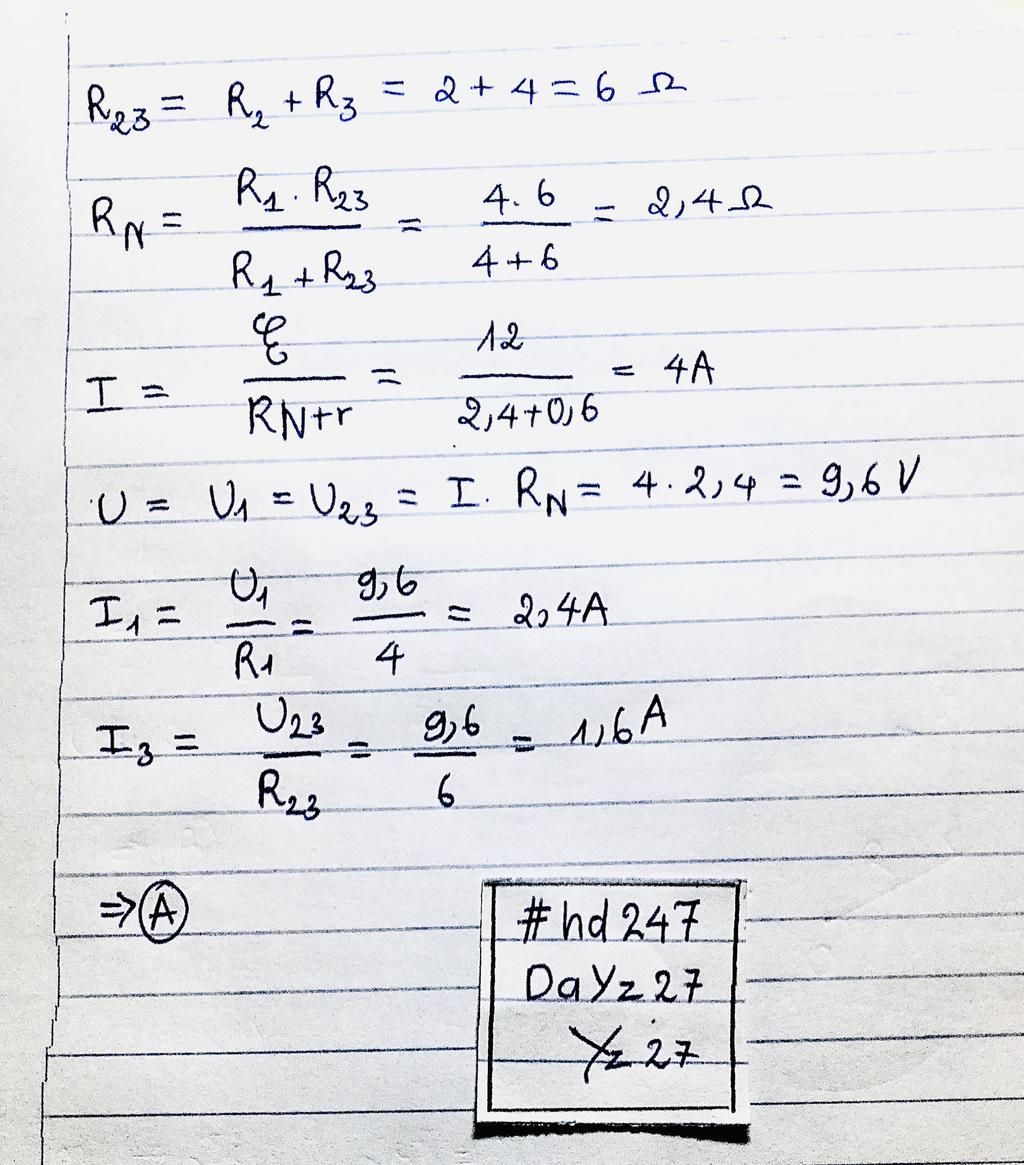 R₂₃ = R₂ + R₃ = 2 + 4 = 6 Ω
R_N = (R₁ . R₂₃)/(R₁ + R₂₃) = (4 . 6)/(4 + 6) = 2,4 Ω
I = ℰ/(RN+r) = 12/(2,4+0,6) = 4A
U = U₁ = U₂₃ = I . R_N = 4 . 2,4 = 9,6 V
I₁ = U₁/R₁ = 9,6/4 = 2,4A
I₃ = U₂₃/R₂₃ = 9,6/6 = 1,6A
⇒ Ⓐ
#hd247
DaYz27
Yz27